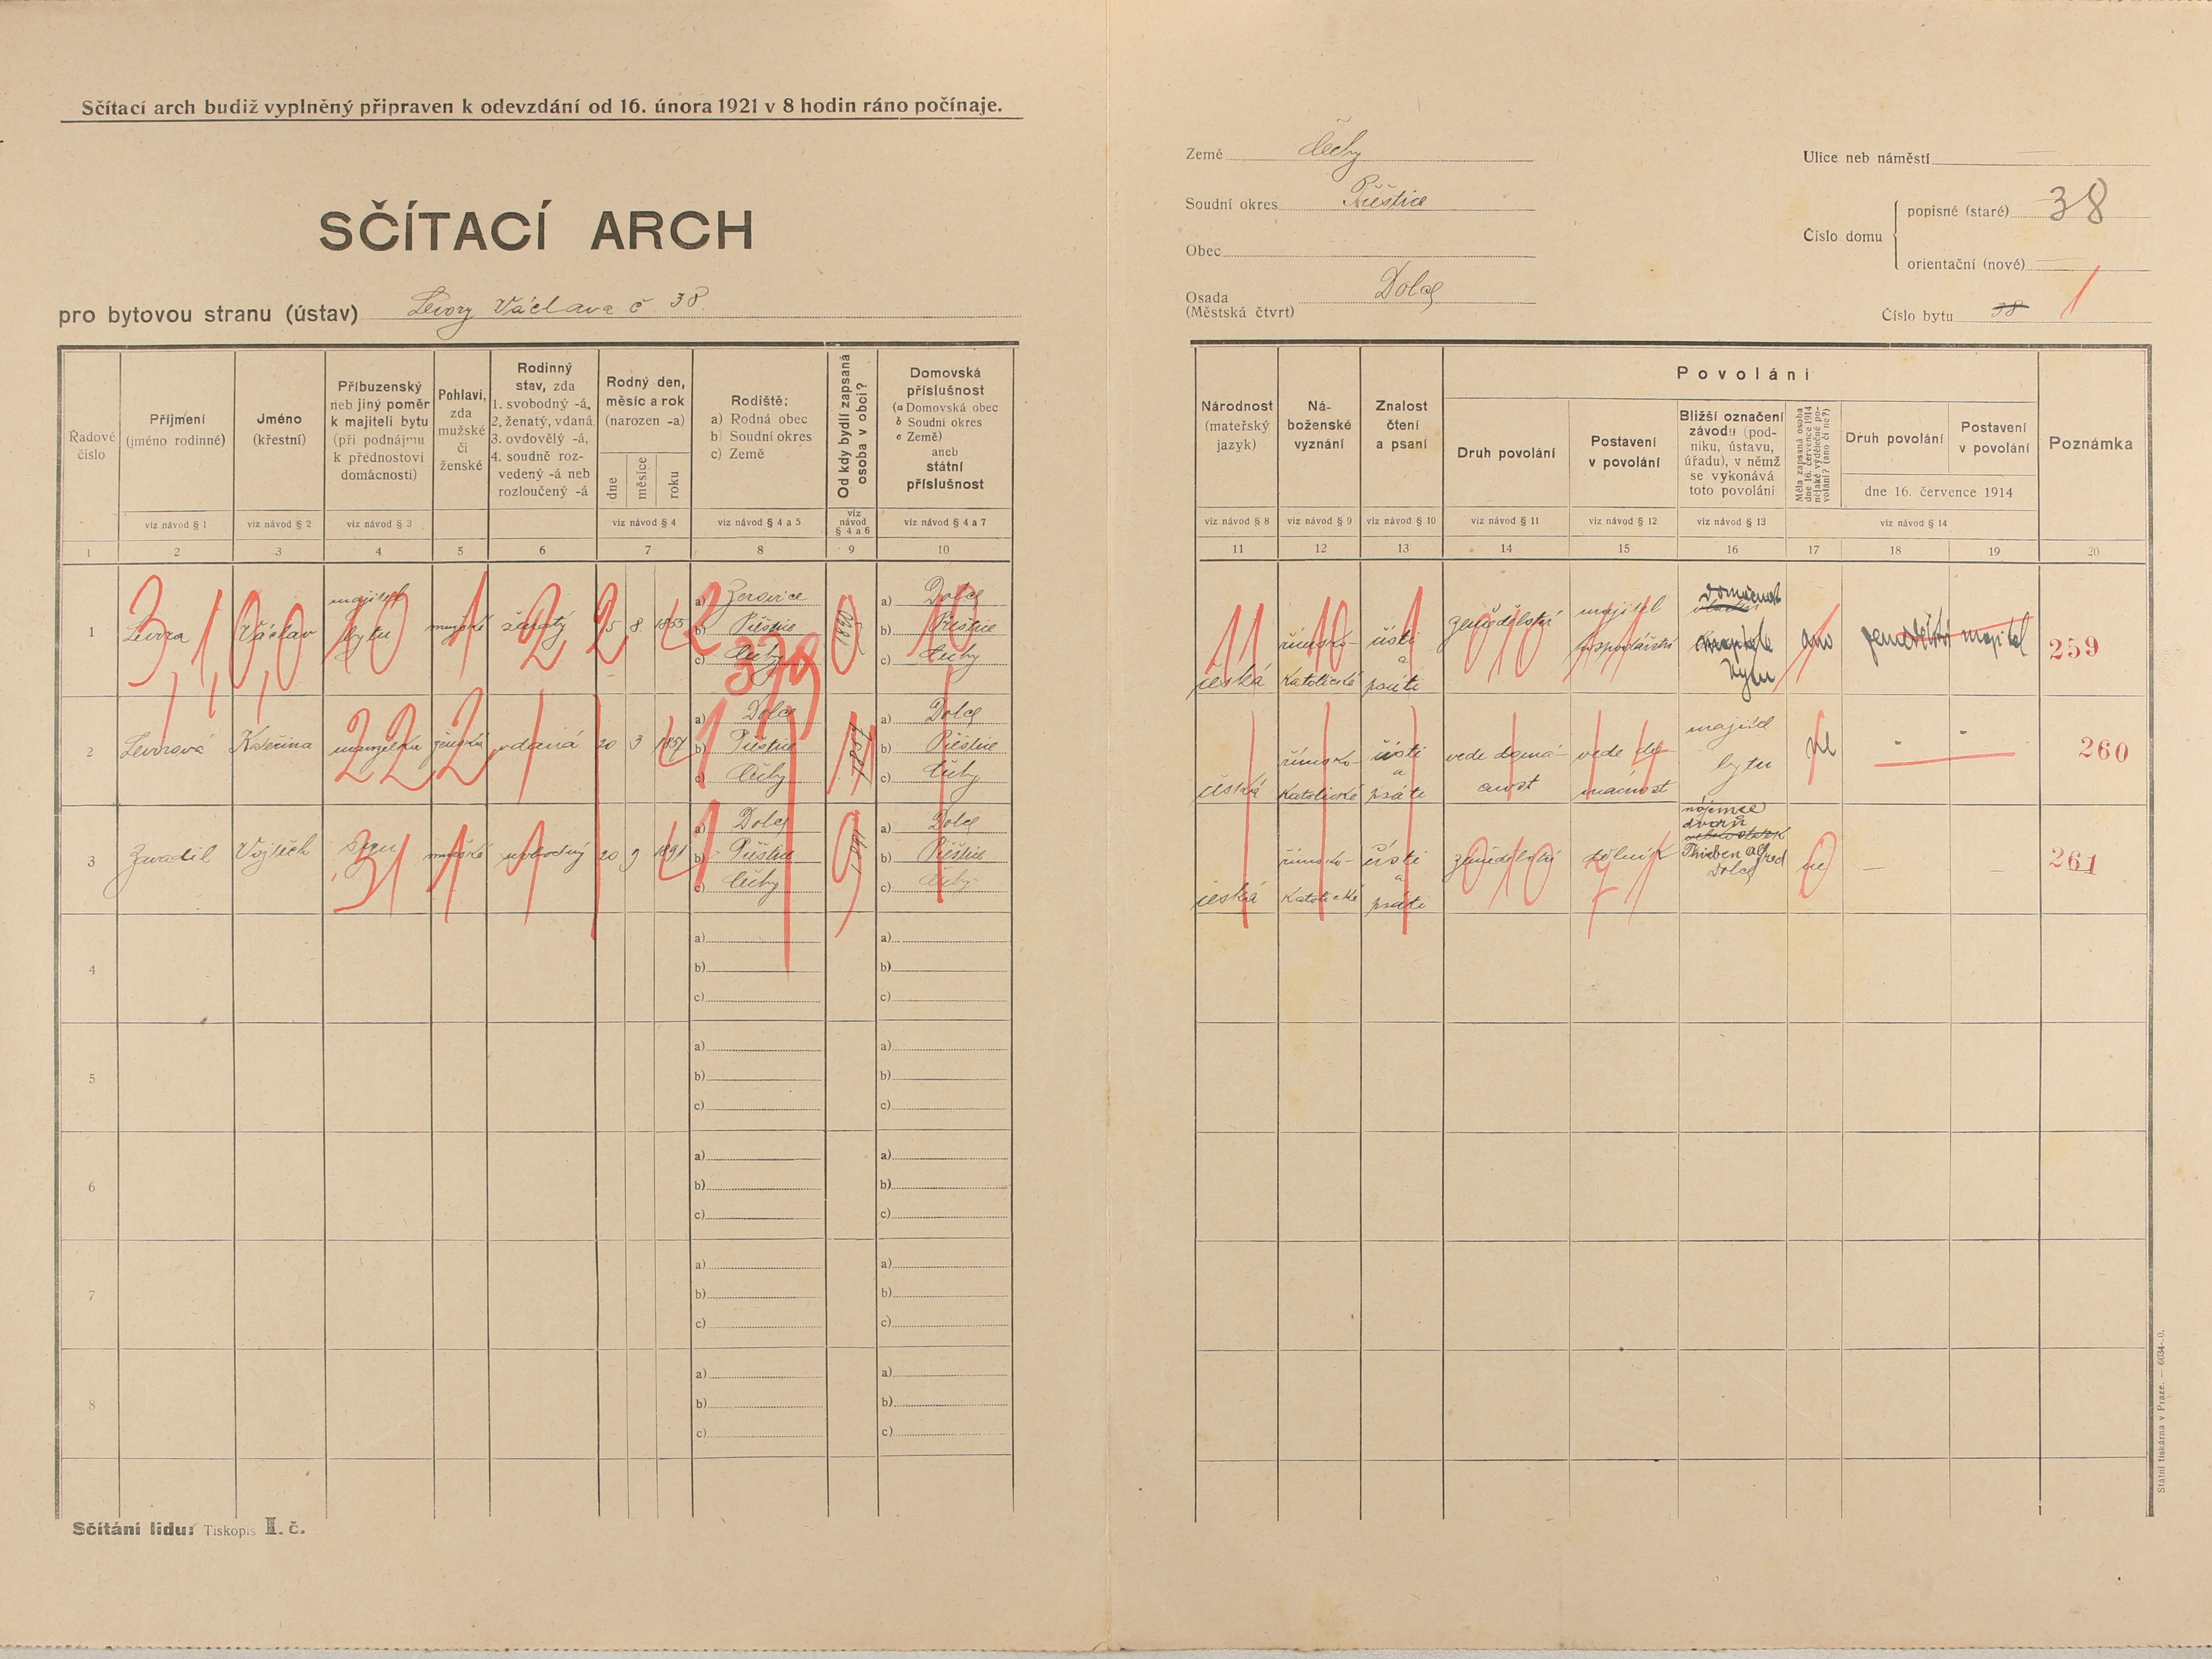 Sčítací arch budiž vyplněný připraven k odevzdání od 16. února 1921 v 8 hodin ráno počínaje.
SČÍTACÍ ARCH
pro bytovou stranu (ústav) Levory Václava č 38.
Země Čechy
Soudní okres Přeštice
Obec
Osada Dolce
(Městská čtvrť)
Ulice neb náměstí
Číslo domu
popisné (staré) 38
orientační (nové)
Číslo bytu 38 1
Řadové číslo
Příjmení (jméno rodinné)
Jméno (křestní)
Příbuzenský neb jiný poměr k majiteli bytu (při podnájmu k přednostovi domácnosti)
Pohlaví, zda mužské či ženské
Rodinný stav, zda 1. svobodný -á, 2. ženatý, vdaná 3. ovdovělý -á, 4. soudně rozvedený -á neb rozloučený -á
Rodný den, měsíc a rok (narozen -a)
dne měsíce roku
Rodiště: a) Rodná obec b) Soudní okres c) Země
Od kdy bydlí zapsaná osoba v obci?
Domovská příslušnost (a Domovská obec b Soudní okres c Země) aneb státní příslušnost
Národnost (mateřský jazyk)
Náboženské vyznání
Znalost čtení a psaní
Povolání
Druh povolání
Postavení v povolání
Bližší označení závodu (podniku, ústavu, úřadu), v němž se vykonává toto povolání
Měla zapsaná osoba dne 16. července 1914 nějaké výdělečné povolání? (ano či ne?)
Druh povolání
Postavení v povolání
dne 16. července 1914
Poznámka
viz návod § 1 viz návod § 2 viz návod § 3 viz návod § 4 viz návod § 4 a 5 viz návod § 4 a 6 viz návod § 4 a 7
viz návod § 8 viz návod § 9 viz návod § 10 viz návod § 11 viz návod § 12 viz návod § 13 viz návod § 14
1 2 3 4 5 6 7 8 9 10
11 12 13 14 15 16 17 18 19 20
1 Levora Václav majitel bytu mužské ženatý 5 8 1855
a) Žerovice
b) Přeštice
c) Čechy
a) Dolce
b) Přeštice
c) Čechy
česká římsko-katolické čísti a psáti zemědělství majitel hospodářství domácnost bytu ano zemědělství majitel 259
2 Levorová Kateřina manželka ženská vdaná 20 3 1857
a) Dolce
b) Přeštice
c) Čechy
1857
a) Dolce
b) Přeštice
c) Čechy
česká římsko-katolické čísti a psáti vede domácnost vede domácnost majitel bytu ne - - 260
3 Zavadil Vojtěch mužské svobodný 20 9 1891
a) Dolce
b) Přeštice
c) Čechy
1891
a) Dolce
b) Přeštice
c) Čechy
česká římsko-katolické čísti a psáti zemědělství dělník nájemce dvorů Alfred Dolce ne — — 261
4
a)
b)
c)
a)
b)
c)
5
a)
b)
c)
a)
b)
c)
6
a)
b)
c)
a)
b)
c)
7
a)
b)
c)
a)
b)
c)
8
a)
b)
c)
a)
b)
c)
Sčítání lidu: Tiskopis II. č.
Státní tiskárna v Praze. — 6034-0.